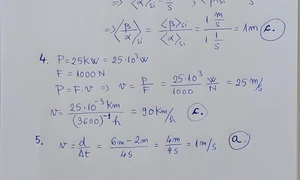 ⟨β/α⟩SI = ⟨β⟩SI / ⟨α⟩SI = 1 m/s / 1 1/s = 1m c.
4. P = 25KW = 25·10³ W
F = 1000 N
P = F·v ⇒ v = P/F = 25·10³/1000 W/N = 25 m/s
v = 25·10⁻³ Km / (3600)⁻¹ h = 90 Km/h c.
5. v = d/Δt = 6m-2m/4s = 4m/4s = 1 m/s a.